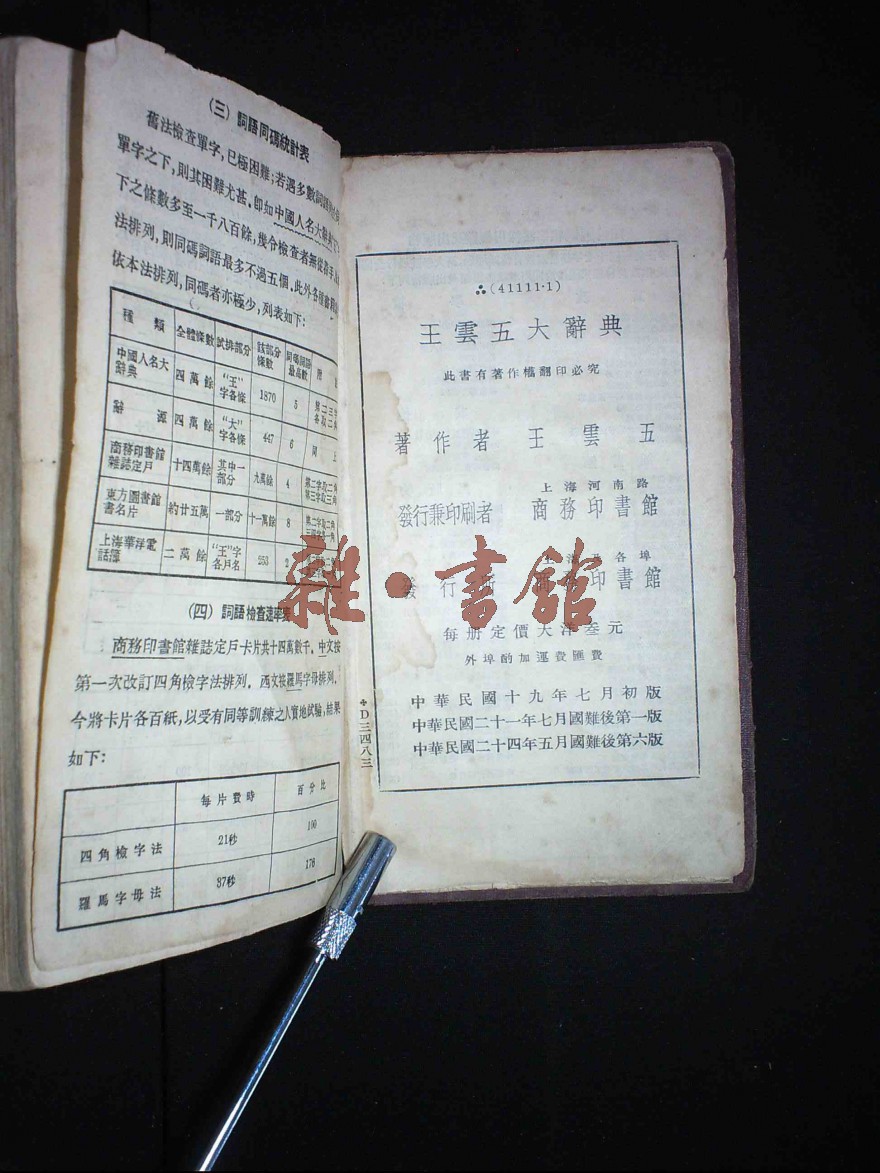 (三) 詞語同碼統計表
舊法檢查單字,已極困難;若遇多數詞語
單字之下,則其困難尤甚.卽如中國人名大
下之條數多至一千八百餘,幾令檢查者無從着手
法排列,則同碼詞語最多不過五個.此外各種
依本法排列,同碼者亦極少,列表如下:
種類 全體條數 試排部分 該部分條數 同碼詞語最高數
中國人名大辭典 四萬餘 “王”字各條 1870 5 第二三字各取二角
辭源 四萬餘 “大”字各條 447 6 同上
商務印書館雜誌定戶 十四萬餘 其中一部分 九萬餘 4 第二字取二角第三字取三角
東方圖書館書名片 約廿五萬 一部分 十一萬餘 8 第二字取二角
上海華洋電話簿 二萬餘 “王”字各戶名 253 2
(四) 詞語檢查速率表
商務印書館雜誌定戶卡片共十四萬數千.中文按
第一次改訂四角檢字法排列.西文按羅馬字母排列.
今將卡片各百紙,以受有同等訓練之人實地試驗,結果
如下:
每片費時 百分比
四角檢字法 21秒 100
羅馬字母法 37秒 176
D三四八三
(41111·1)
王雲五大辭典
此書有著作權翻印必究
著作者 王雲五
上海河南路
發行兼印刷者 商務印書館
上海及各埠
發行所 商務印書館
每册定價大洋叁元
外埠酌加運費匯費
中華民國十九年七月初版
中華民國二十一年七月國難後第一版
中華民國二十四年五月國難後第六版
雜·書館